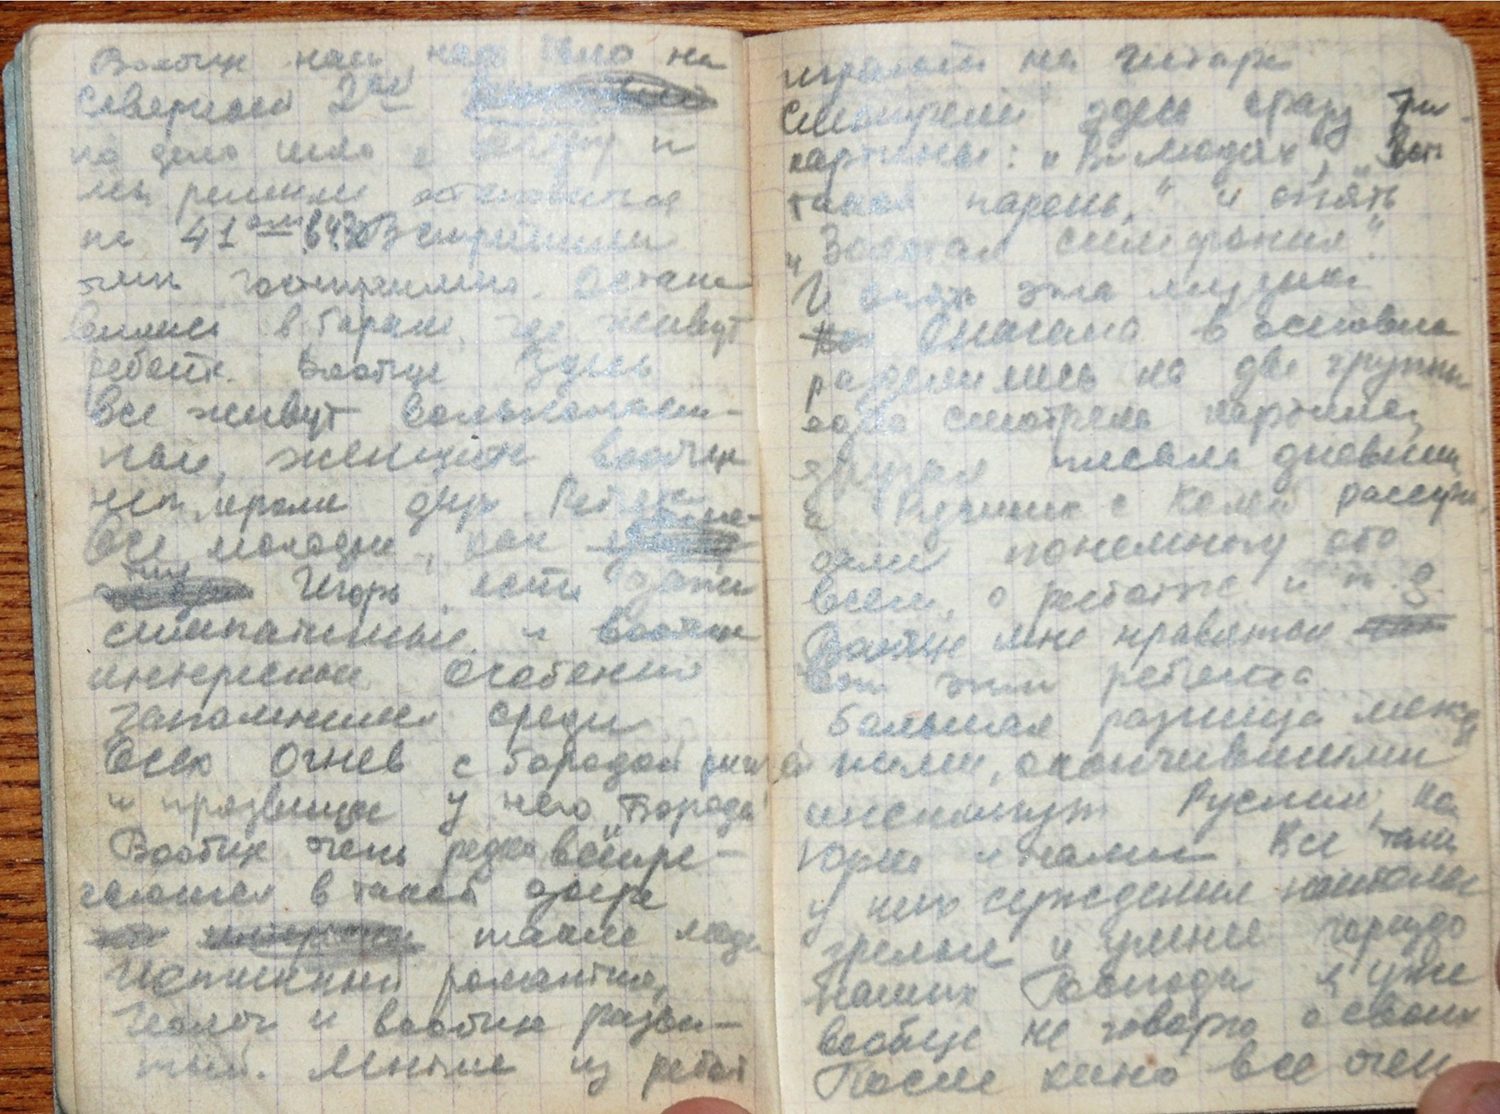 Вообще нам надо было на
Северном 2ой
но дело шло к вечеру и
мы решили остановится
на 41ом Встретили
очень гостеприимно. Остано
вились в бараке, где живут
ребята. Вообще здесь
все живут
женщин вообще
нет, кроме двух. Ребята
все молодые, как
типа Игоря, есть даже
симпатичные и вообще
интересные Особенно
запомнился среди
всех Огнев с бородой рыжей
и прозвище у него Борода
Вообще очень редко встре-
чаются в такой дыре
такие люди
Истинный романтик,
геолог и вообще разви-
тый. Многие из ребят
играют на гитаре
Смотрели здесь сразу три
картины: "В людях", "Вот
такой парень," и опять
"Золотая симфония"
И опять эта музыка
Сначала в основном
разделились на две группы
одна смотрела картины,
другая писала дневники
а Русланк с Колей рассуж
дали понемногу обо
всем, о работе и т.д.
Вообще мне нравятся
эти ребята
Большая разница между
ними, окончившими
институт Руслан, Ко
Юрка и нами. Все таки
у них суждения намного
зрелые и умнее гораздо
наших Господи я уже
вообще не говорю о своих
После кино все очень